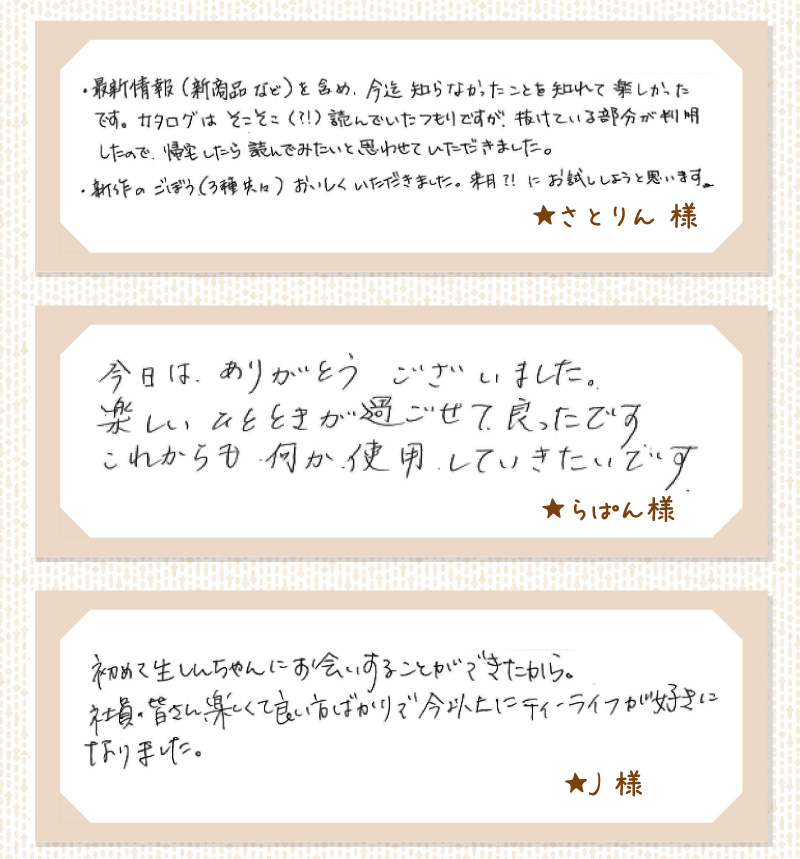 ・最新情報(新商品など)を含め、今迄知らなかったことを知れて楽しかった
です。カタログはそこそこ(?!)読んでいたつもりですが、抜けている部分が判明
したので、帰宅したら読んでみたいと思わせていただきました。
・新作のごぼう(3種共々)おいしくいただきました。来月?!にお試ししようと思います。
★さとりん 様
今日は、ありがとうございました。
楽しいひとときが過ごせて、良ったです
これからも何か使用していきたいです
★らぱん様
初めて生しんちゃんにお会いすることができたから。
社員の皆さん楽しくて良い方ばかりで今以上にティーライフが好きに
なりました。
★J 様